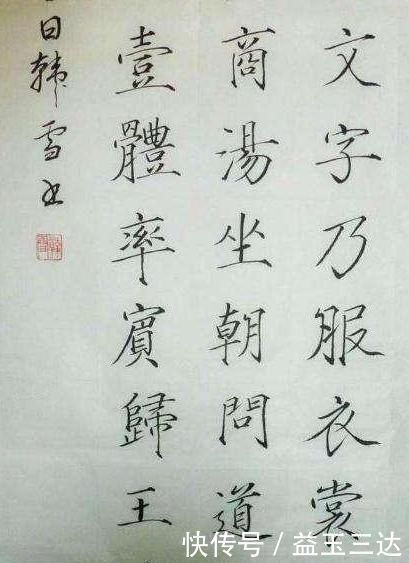 文字乃服衣裳
商湯坐朝問道
壹體率賓歸王
日韩雪书
快传号/益玉三达